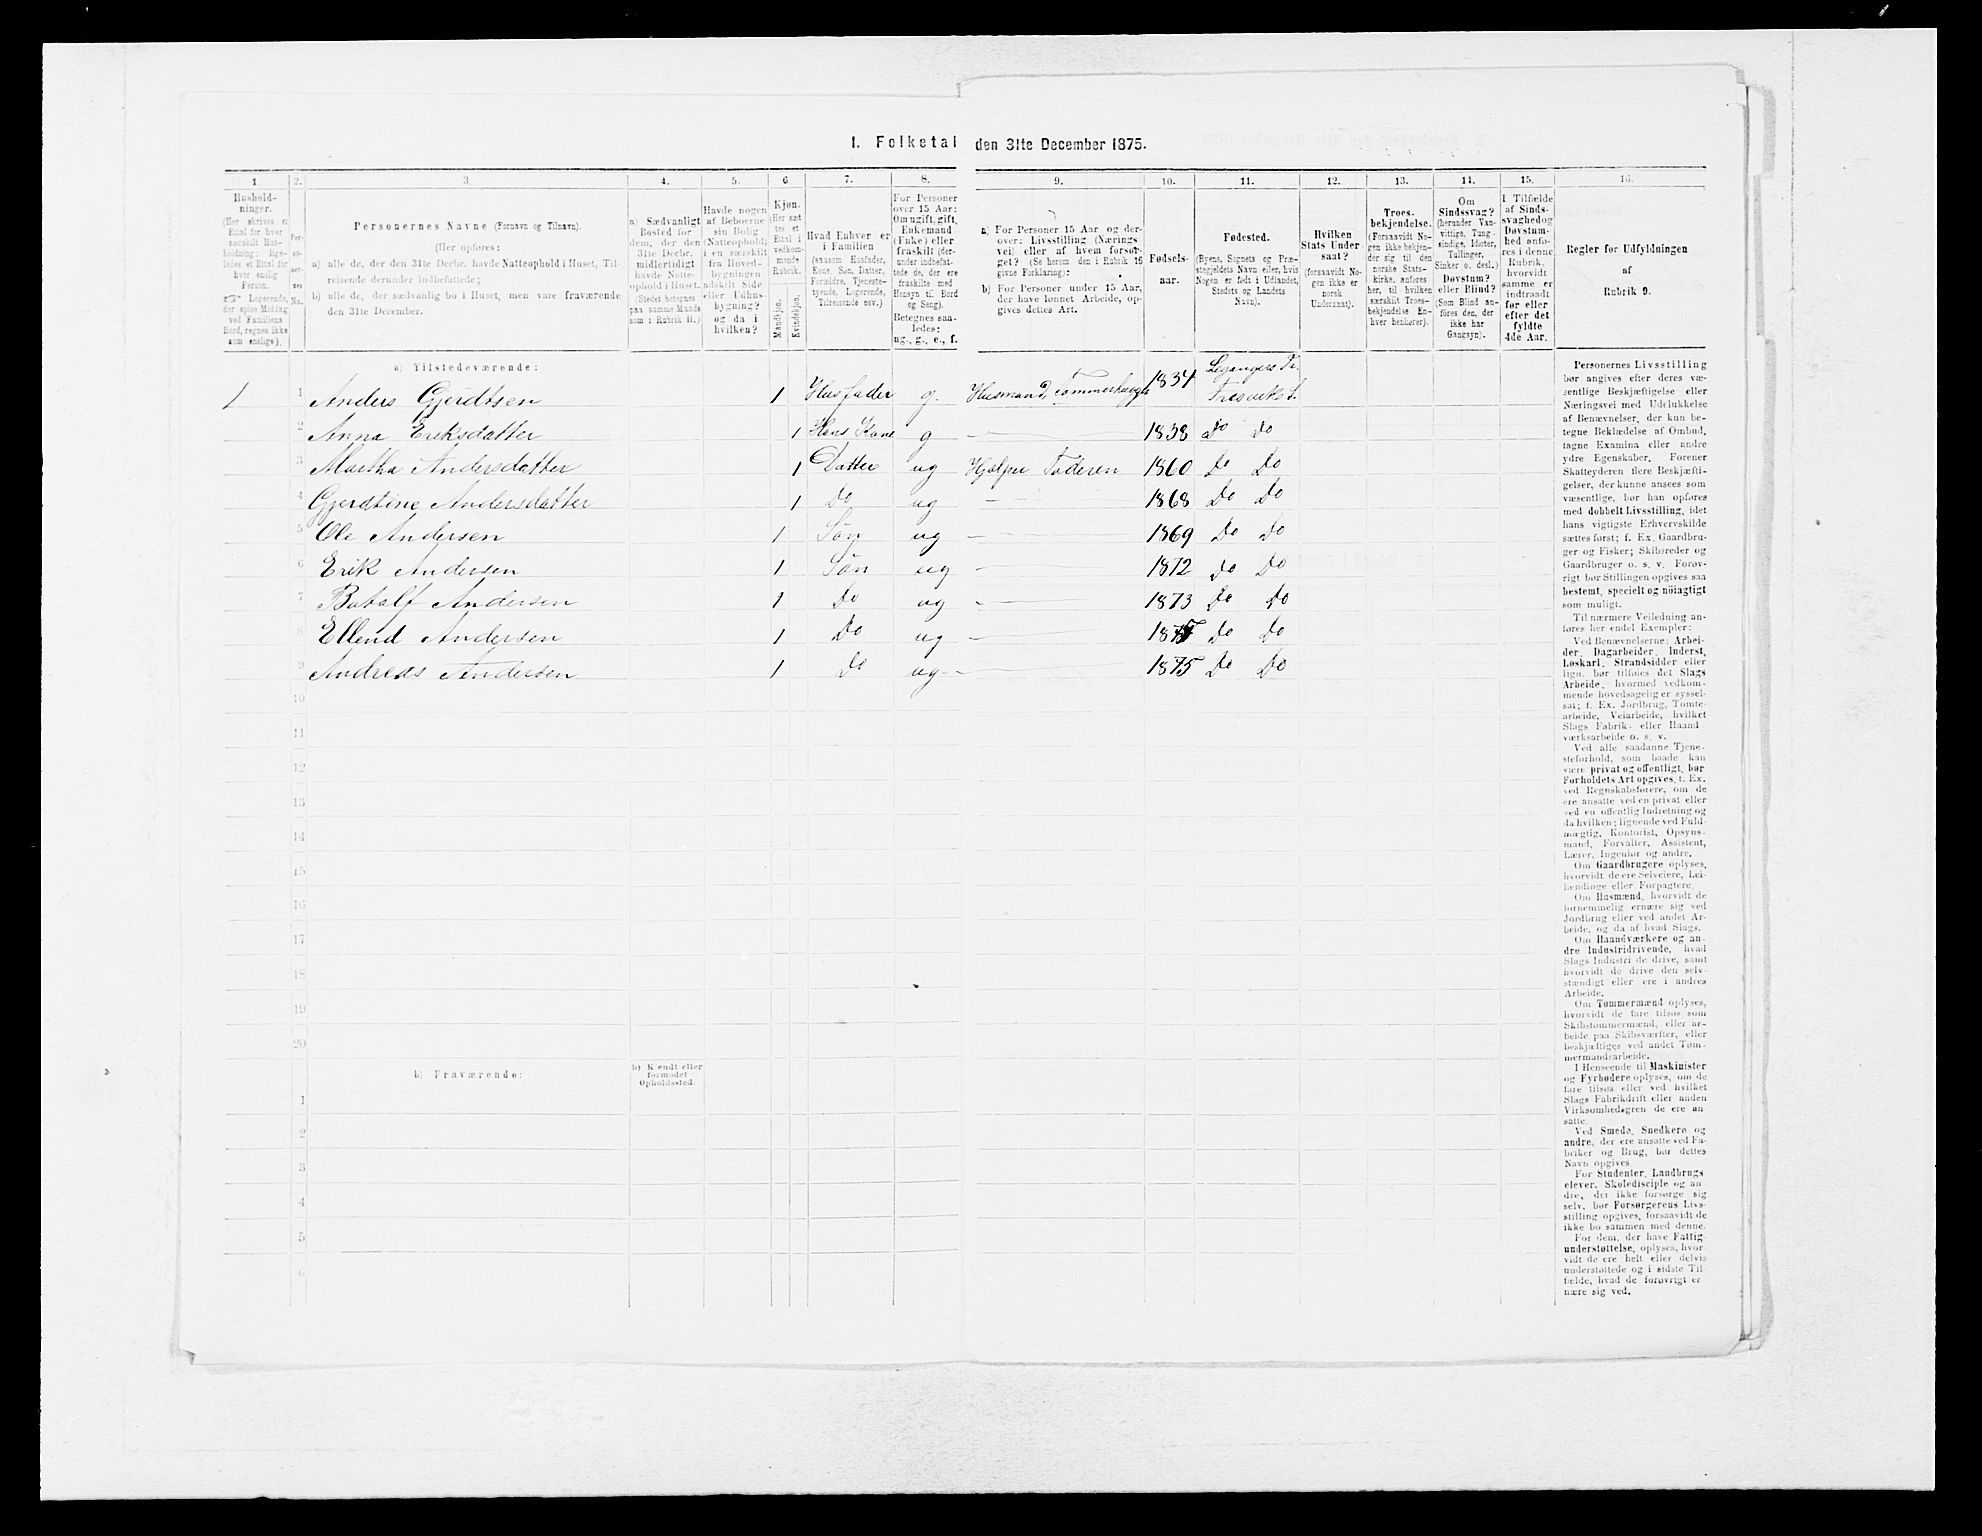 1. Folketal den 31te December 1875.
1. 2. 3. 4. 5. 6. 7. 8. 9. 10. 11. 12. 13. 14. 15. 16.
Hushold-
ninger.
(Her skrives et
Ettal for hver
særskilt Hus-
holdning; lige-
ledes et Ettal for
hver enslig
Person.
☞ Logerende,
der spise Middag
ved Familiens
Bord, regnes ikke
som enslige).
Per-
so-
ner-
nes
No.
Personernes Navne (Fornavn og Tilnavn).
(Her opføres:
a) alle de, der den 31te Decbr. havde Natteophold i Huset, Til-
reisende derunder indbefattede;
b) alle de, der sædvanlig bo i Huset, men vare fraværende
den 31te December.
a) Sædvanligt
Bosted for
dem, der den
31te Decbr.
midlertidigt
havde Natte-
ophold i Huset.
(Stedet betegnes
paa samme Maade
som i Rubrik 11.)
Havde nogen
af Beboerne
sin Bolig
(Natteophold)
i en særskilt
fra Hoved-
bygningen
adskilt Side
eller Udhus-
bygning?
og da i
hvilken?
Kjøn.
(Her sæt
tes et
Ettal i
vedkom-
mende
Rubrik.
Mandkjøn.
Kvindekjøn.
Hvad Enhver er
i Familien
(saasom Husfader,
Kone, Søn, Datter,
Forældre, Tjeneste-
tyende, Logerende,
Tilreisende osv.)
For Personer
over 15 Aar:
Om ugift, gift,
Enkemand
(Enke) eller
fraskilt (der-
under indbefat-
tede de, der ere
fraskilte med
Hensyn til Bord
og Seng).
Betegnes saa-
ledes:
ug., g., e., f.
a) For Personer 15 Aar og der-
over: Livsstilling (Nærings
vei) eller af hvem forsør-
get? (Se herom den i Rubrik 16
givne Forklaring):
b) For Personer under 15 Aar,
der have lønnet Arbeide, op-
gives dettes Art.
Fødsels-
aar.
Fødested.
(Byens, Sognets og Præ-
stegjeldets Navn eller, hvis
Nogen er født i Udlandet,
Stedets og Landets
Navn).
Hvilken
Stats Under-
saat?
(forsaavidt No-
gen ikke er
norsk
Undersaat).
Troes-
bekjendelse.
(Forsaavidt No-
gen ikke bekjen-
der sig til den
norske Stats-
kirke, anføres
her, til hvilken
særskilt Troes-
bekjendelse En-
hver henhører).
Om
Sindssvag?
(herunder Van-
vittige, Tung-
sindige, Idioter,
Tullinger,
Sinker o. desl.)
Døvstum?
eller Blind?
(Som Blind an-
føres den, der
ikke har
Gangsyn).
I Tilfælde
af Sinds-
svaghed og
Døvstum-
hed anfø-
res i denne
Rubrik,
hvorvidt
samme er
indtraadt
før eller
efter det
fyldte
4de Aar.
Regler for Udfyldningen
af
Rubrik 9.
a) Tilstedeværende:
1 1 Anders Gjerdtsen 1 Husfader g. Husmand, 1834
2 Anna Eriksdatter 1 Hans Kone g — 1838 Do Do
3 Martha Andersdatter 1 Datter ug Hjælper Faderen 1860 Do Do
4 Gjerdtine Andersdatter 1 Do ug — 1868 Do Do
5 Ole Andersen 1 Søn ug — 1869 Do Do
6 Erik Andersen 1 Søn ug — 1872 Do Do
7 Andersen 1 Do ug — 1873 Do Do
8 Ellend Andersen 1 Do ug — Do Do
9 Andreas Andersen 1 Do ug — 1875 Do Do
10
11
12
13
14
15
16
17
18
19
20
b) Fraværende:
b) Kendt eller
formodet
Opholdssted.
1
2
3
4
5
6
Personernes Livsstilling
bør angives efter deres væ-
sentlige Beskjæftigelse eller
Næringsvei med Udelukkelse
af Benævnelser, der kun be-
tegne Beklædelse af Ombud,
tagne Examina eller andre
ydre Egenskaber. Forener
Skatteyderen flere Beskjæfti-
gelser, der kunne ansees som
væsentlige, bør han opføres
med dobbelt Livsstilling, idet
hans vigtigste Erhvervskilde
sættes først; f. Ex. Gaardbru-
ger og Fisker; Skibsreder og
Gaardbruger o. s. v. Forøv-
rigt bør Stillingen opgives saa
bestemt, specielt og nøiagtigt
som muligt.
Til nærmere Veiledning an-
føres her endel Exempler:
Ved Benævnelserne: Arbei-
der, Dagarbeider, Inderst,
Løskarl, Strandsidder eller
lign. bør tilføies det Slags
Arbeide, hvormed vedkom-
mende hovedsagelig er syssel-
sat; f. Ex. Jordbrug, Tomte-
arbeide, Veiarbeide, hvilket
Slags Fabrik- eller Haand-
værksarbeide o. s. v.
Ved alle saadanne Tjene-
steforhold, som baade kan
være privat og offentligt, bør
Forholdets Art opgives, t. Ex.
ved Regnskabsførere, om de
ere ansatte ved en privat eller
ved en offentlig Indretning og
da hvilken; lignende ved Fuld-
mægtig, Kontorist, Opsyns-
mand, Forvalter, Assistent,
Lærer, Ingeniør og andre.
Om Gaardbrugere oplyses,
hvorvidt de ere Selveiere, Lei-
lændinge eller Forpagtere.
Om Husmænd, hvorvidt de
fornemmelig ernære sig ved
Jordbrug eller ved andet Ar-
beide, og da af hvad Slags.
Om Haandværkere og an-
dre Industridrivende, hvad
Slags Industri de drive, samt
hvorvidt de drive den selv-
stændigt eller ere i andres
Arbeide.
Om Tømmermænd oplyses,
hvorvidt de fare tilsøs som
Skibstømmermænd, eller ar-
beide paa Skibsværfter, eller
beskjæftiges ved andet Tøm-
mermandsarbeide.
I Henseende til Maskinister
og Fyrbødere oplyses, om de
fare tilsøs eller ved hvilket
Slags Fabrikdrift eller anden
Virksomhedsgren de ere an-
satte.
Ved Smede, Snedkere og
andre, der ere ansatte ved Fa-
briker og Brug, bør dettes
Navn opgives.
For Studenter, Landbrugs-
elever, Skoledisciple og an-
dre, der ikke forsørge sig
selv, bør Forsørgerens Livs-
stilling opgives, forsaavidt de
ikke bo sammen med denne.
For dem, der have Fattig-
understøttelse, oplyses, hvor-
vidt de ere helt eller delvis
understøttede og i sidste Til-
fælde, hvad de forøvrigt er
nære sig ved.